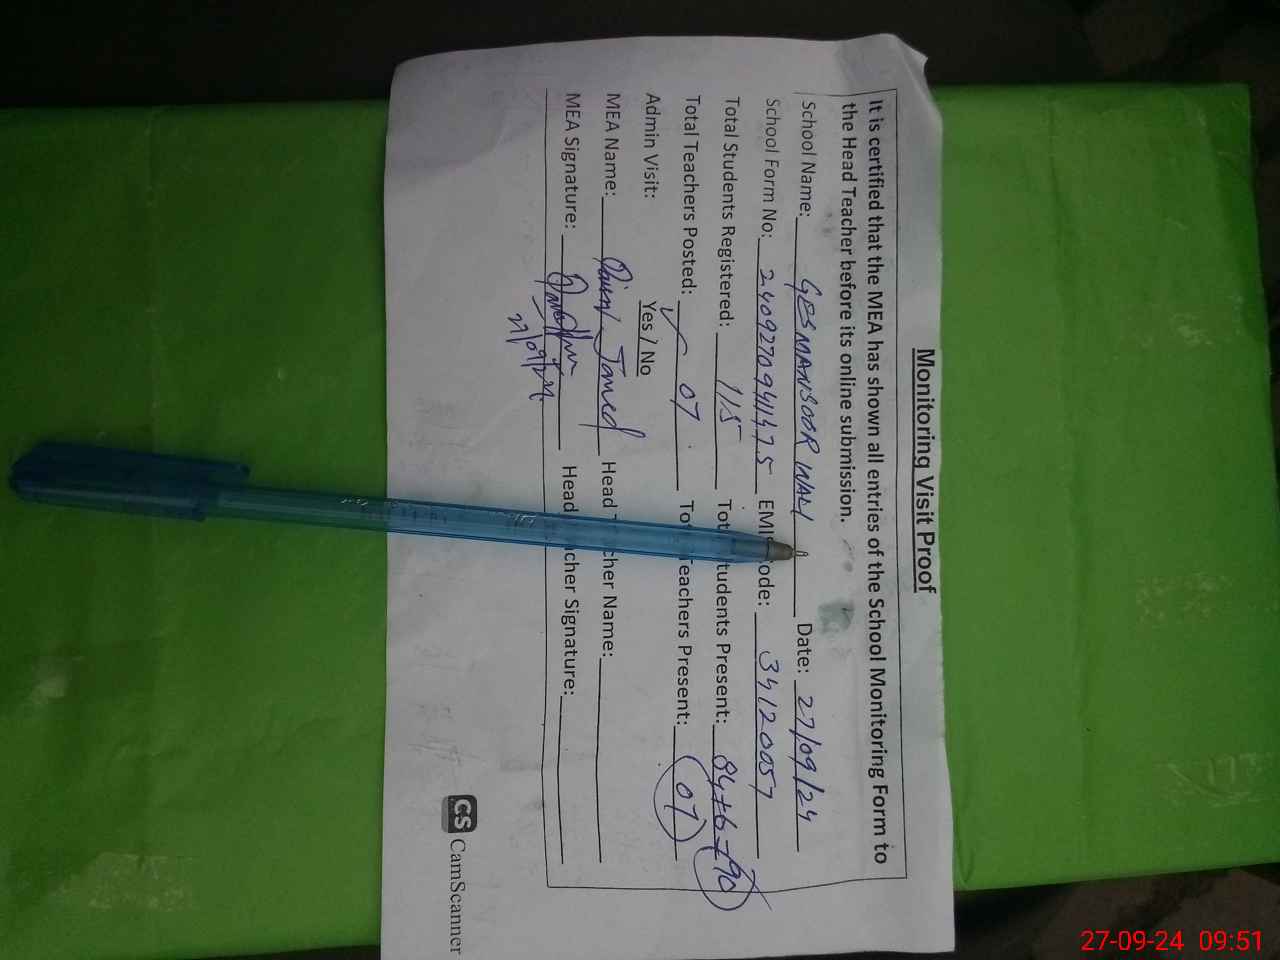 Monitoring Visit Proof
It is certified that the MEA has shown all entries of the School Monitoring Form to
the Head Teacher before its online submission.
School Name: GES MANSOOR WALI Date: 27/09/24
School Form No: 24092709411475 EMIS Code: 34120057
Total Students Registered: 115 Total Students Present: 84+6=90
Total Teachers Posted: 07 Total Teachers Present: 07
Admin Visit: Yes / No
MEA Name: Head Teacher Name:
MEA Signature: Head Teacher Signature:
27/09/24
CS CamScanner
27-09-24 09:51